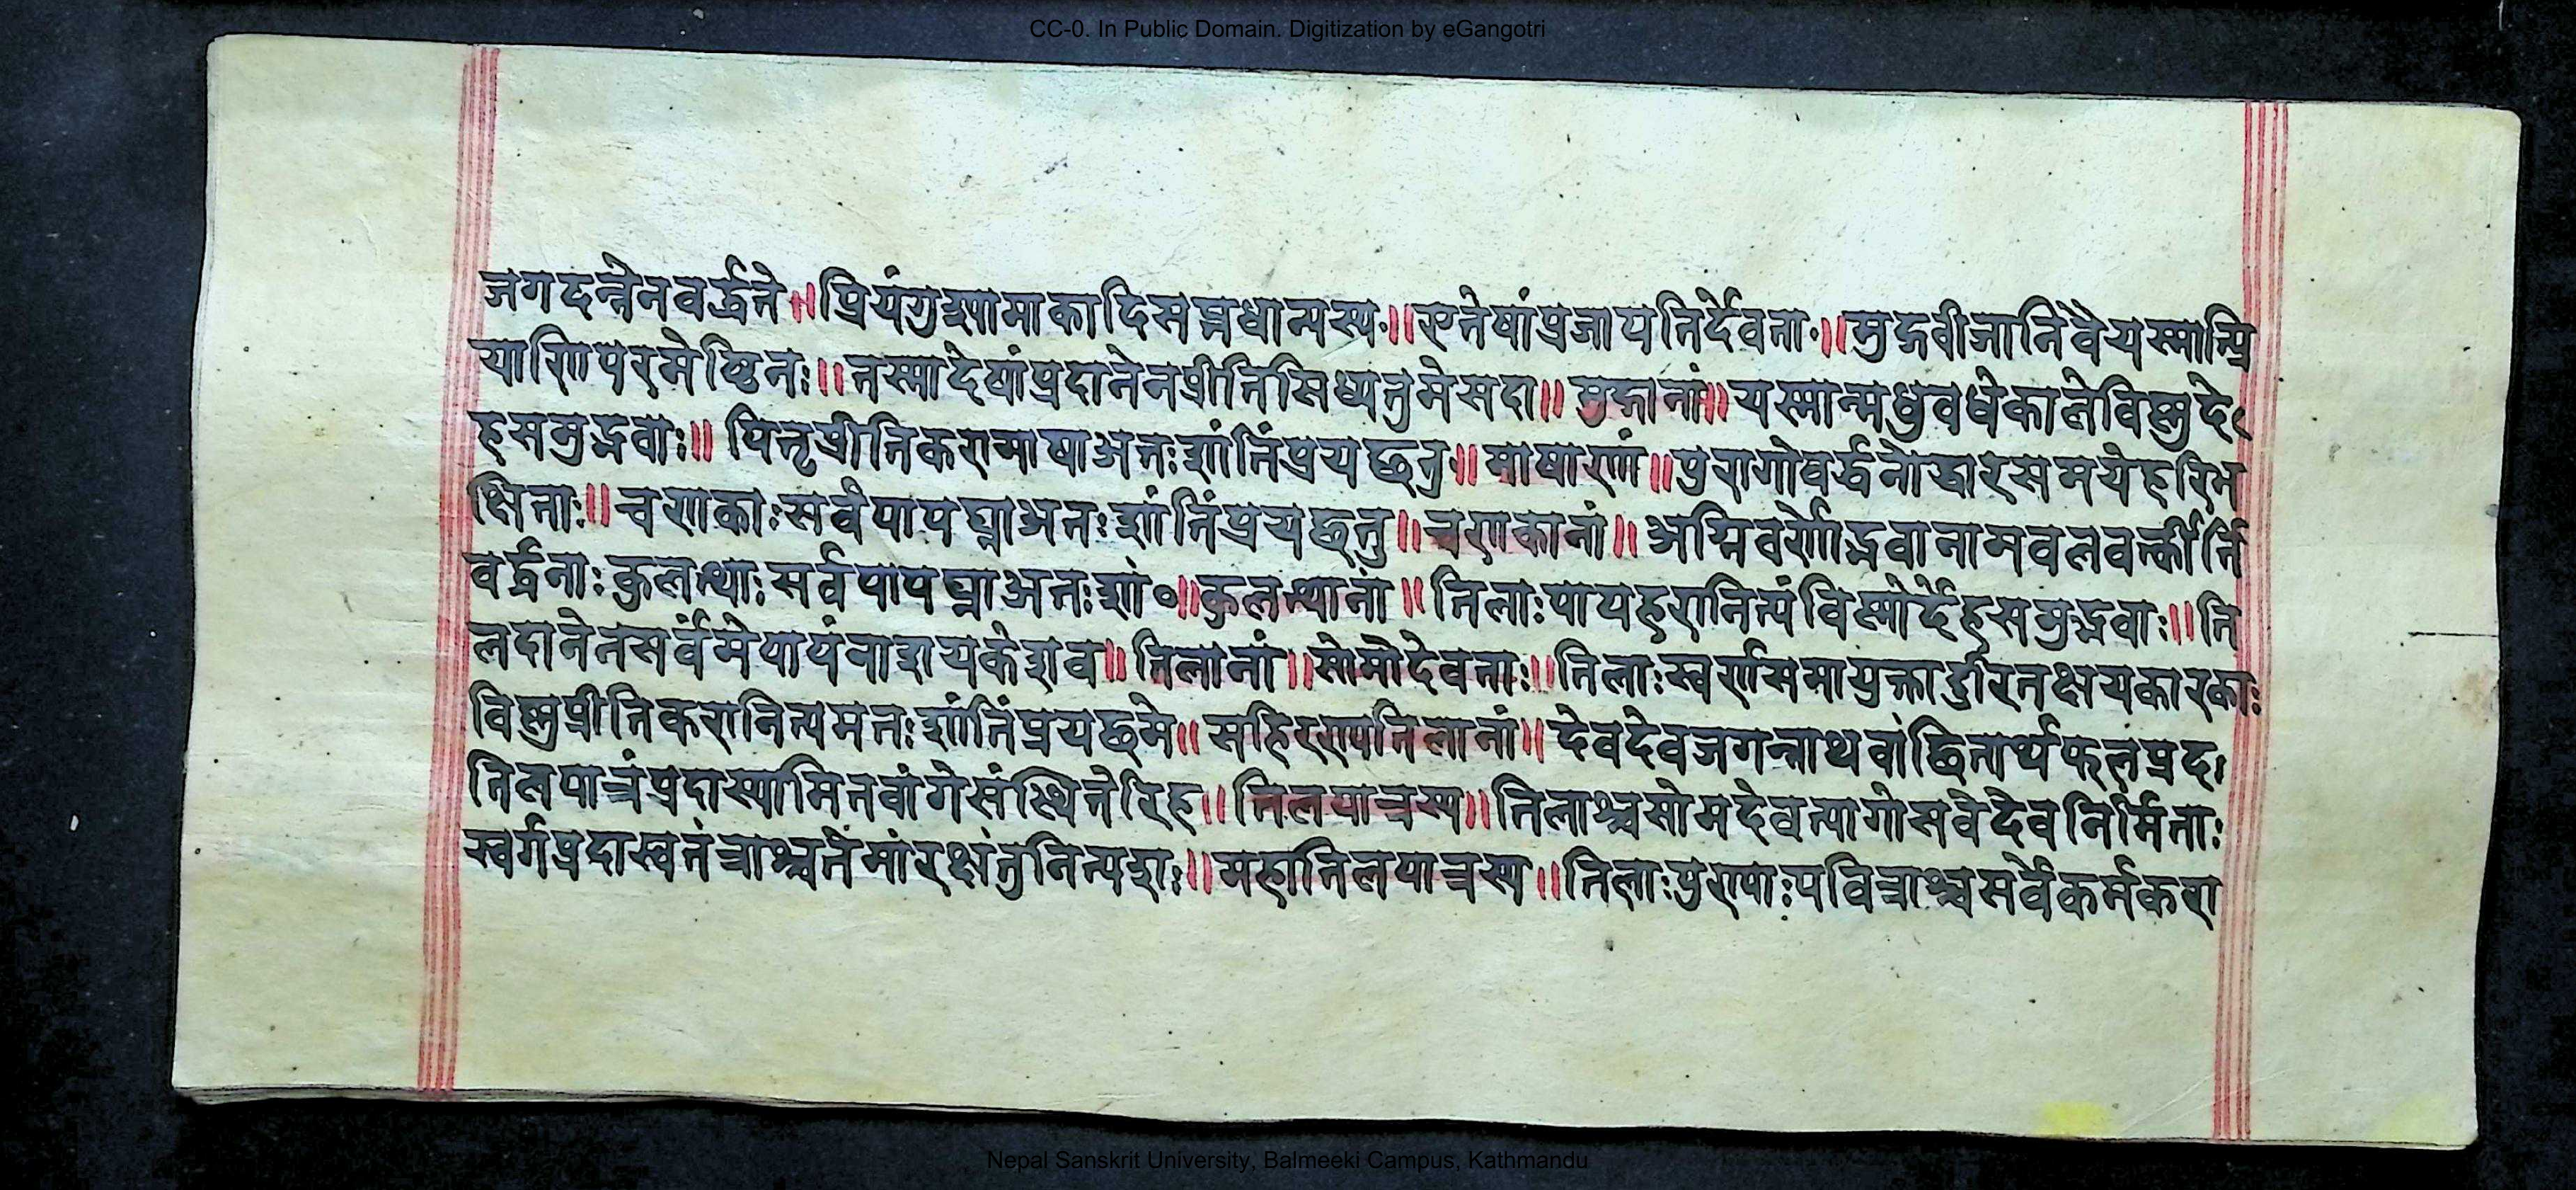 CC-0. In Public Domain. Digitization by eGangotri
जगदन्नेनवर्द्धते ॥ प्रियंगुश्यामाकादिसप्तधान्यस्य ॥ एतेषांप्रजापतिर्देवता ॥ मुद्गवीजानिवैयस्मात्प्रि
याणिपरमेष्ठिनः ॥ तस्मादेषांप्रदानेनप्रीतिसिध्यतुमेसदा ॥ मुद्गानां ॥ यस्मान्मधुवधेकालेविष्णुदे
हसमुद्भवाः ॥ पितृप्रीतिकरामाषाअतःशांतिंप्रयछतु ॥ माषाणां ॥ पुरागोवर्द्धनोद्धारसमयेहरिभ
क्षिताः ॥ चणकाःसर्वपापघ्नाअतःशांतिंप्रयछतु ॥ चणकानां ॥ अग्निवर्णोद्भवानामवलवर्त्कीर्ति
वर्द्धनाःकुलत्थाःसर्वपापघ्नाअतःशां० ॥ कुलत्थानां ॥ तिलाःपापहरानित्यंविष्णोर्देहसमुद्भवाः ॥ ति
लदानेनसर्वंमेपापंनाशयकेशव ॥ तिलानां ॥ सोमोदेवताः ॥ तिलाःस्वर्णसमायुक्ताद्दुरितक्षयकारकाः
विष्णुप्रीतिकरानित्यमतःशांतिंप्रयछमे ॥ सहिरण्यतिलानां ॥ देवदेवजगन्नाथवांछितार्थफलप्रद।
तिलपात्रंप्रदास्यामितवांगेसंस्थितेरिह ॥ तिलपात्रस्य ॥ तिलाश्चसोमदेवत्यागोसवेदेवनिर्मिताः
स्वर्गप्रदास्वतंत्राश्चतेमांरक्षंतुनित्यशः ॥ महातिलपात्रस्य ॥ तिलाःपुण्याःपवित्राश्चसर्वेकर्मकरा
Nepal Sanskrit University, Balmeeki Campus, Kathmandu